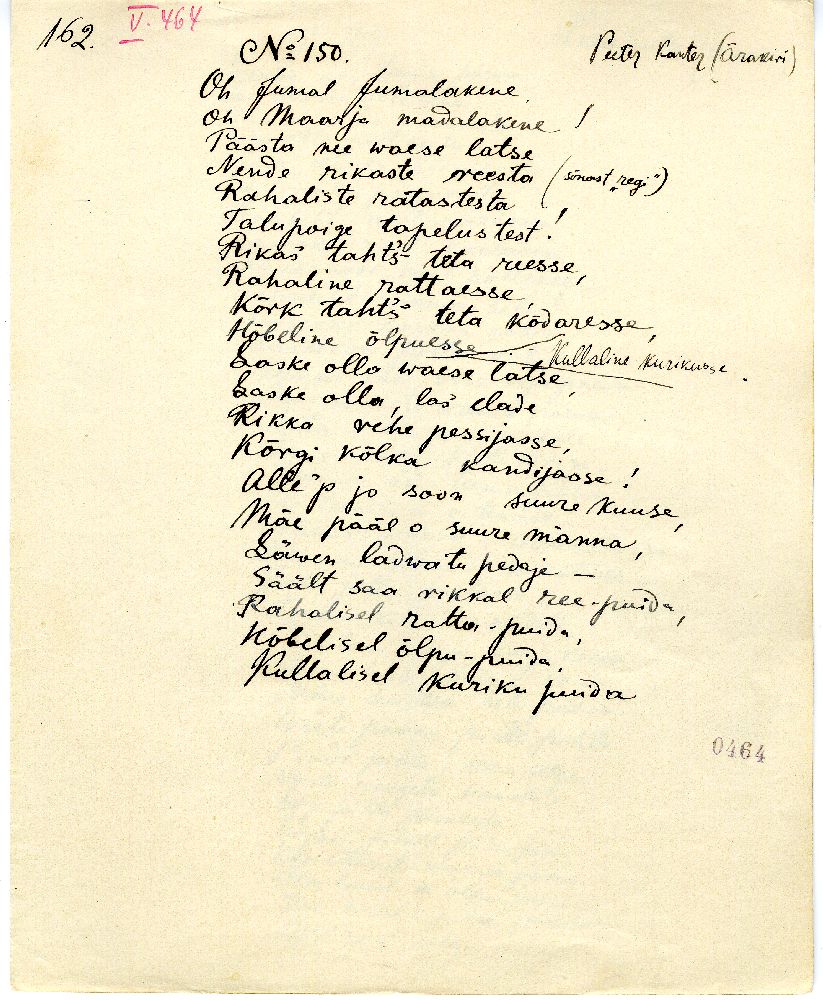 162.
V. 464
№ 150.
Peeter Kanter (ärakiri)
Oh Jumal Jumalakene,
Oh Maarja madalakene!
Päästa nee waese latse
Nende rikaste reesta (sõnast „regi“)
Rahaliste ratastesta
Talupoige tapelustest!
Rikas taht's teta reesse,
Rahaline rattaesse,
Kõrk taht's teta kodaresse,
Hõbeline õlpuesse
Kullaline kurikusse.
Laske olla waese latse,
Laske olla, las elade
Rikka rehe pessijasse,
Kõrgi kõlka kandijasse!
Alle'p jo soon suure kuuse,
Mäe pääl o suure männa,
Läwen ladwatu pedaje –
Säält saa rikkal ree-puida,
Rahalisel ratta-puida,
Hõbelisel õlpu-puida,
Kullalisel kuriku puida
0464